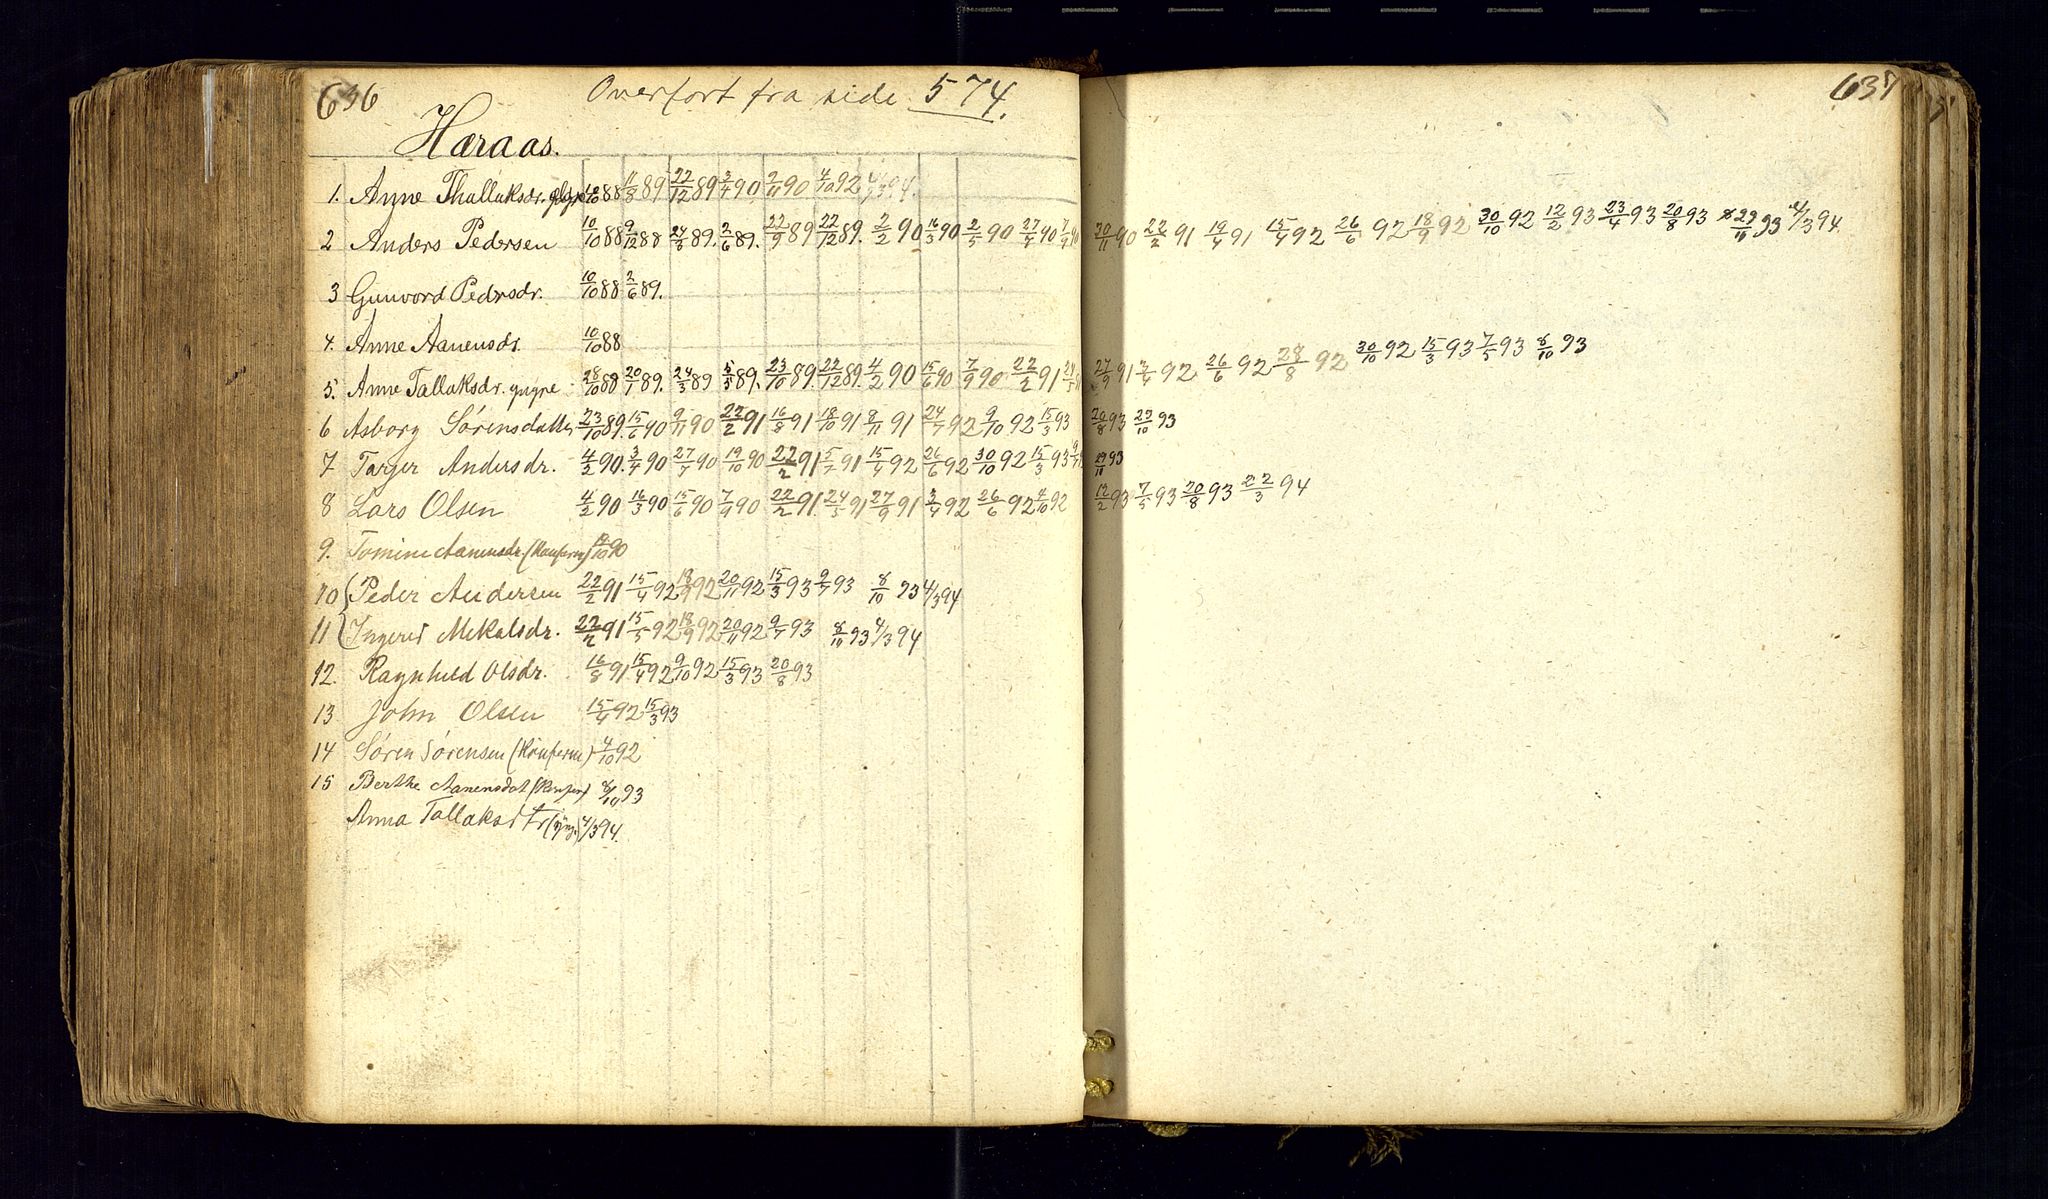 636 Overført fra side 574. 637
Hæraas.
1. Anne Thallaksdr. 10/10 88 11/8 89 22/12 89 3/4 90 2/11 90 4/10 92 4/3 94.
2 Anders Pedersen 10/10 88 9/12 88 24/3 89. 2/6 89. 22/9 89 22/12 89. 2/2 90 16/3 90 2/5 90 27/7 90 7/9 90 30/11 90 22/2 91 19/4 91 15/4 92 26/6 92 18/9 92 30/10 92 12/2 93 23/4 93 20/8 93 29/11 93 4/3 94
3 Gunvord Pedersdr. 10/10 88 2/6 89.
4. Anne Aanensdr. 10/10 88
5. Anne Tallaksdr. yngre 28/10 88 20/1 89. 24/3 89 5/5 89. 23/10 89. 22/12 89. 4/2 90 15/6 90 7/9 90 22/2 91 24/5 91 27/9 91 3/4 92 26/6 92 28/8 92 30/10 92 15/3 93 7/5 93 8/10 93
6 Asborg Sørensdatter 23/10 89. 15/6 90 9/11 90 22/2 91 16/8 91 18/10 91 8/11 91 24/7 92 9/10 92 15/3 93 20/8 93 29/10 93
7 Tarjer Andersdr. 4/2 90. 3/4 90 27/7 90 19/10 90 22/2 91 5/7 91 15/4 92 26/6 92 30/10 92 15/3 93 9/7 93 29/11 93
8 Lars Olsen 4/2 90 16/3 90 15/6 90 7/9 90 22/2 91. 24/5 91 27/9 91 3/4 92 26/6 92 4/10 92 12/2 93 7/5 93 20/8 93 22/3 94
9. Tomine Aanensdr. (Konferm) 19/10 90
10 Peder Andersen 22/2 91 15/4 92 18/9 92 20/11 92 15/3 93 9/7 93 8/10 93 4/3 94
11 Ingerid Mikalsdr. 22/2 91 15/5 92 18/9 92 20/11 92 9/7 93 8/10 93 4/3 94
12. Ragnhild Olsdr. 16/8 91 15/4 92 9/10 92 15/3 93 20/8 93
13 John Olsen 15/4 92 15/3 93
14 Søren Sørensen (Konferm) 4/10 92
15 Berthe Aanensdat (Konfer) 8/10 93
Anna Tallaksdtr (yng.) 4/3 94.